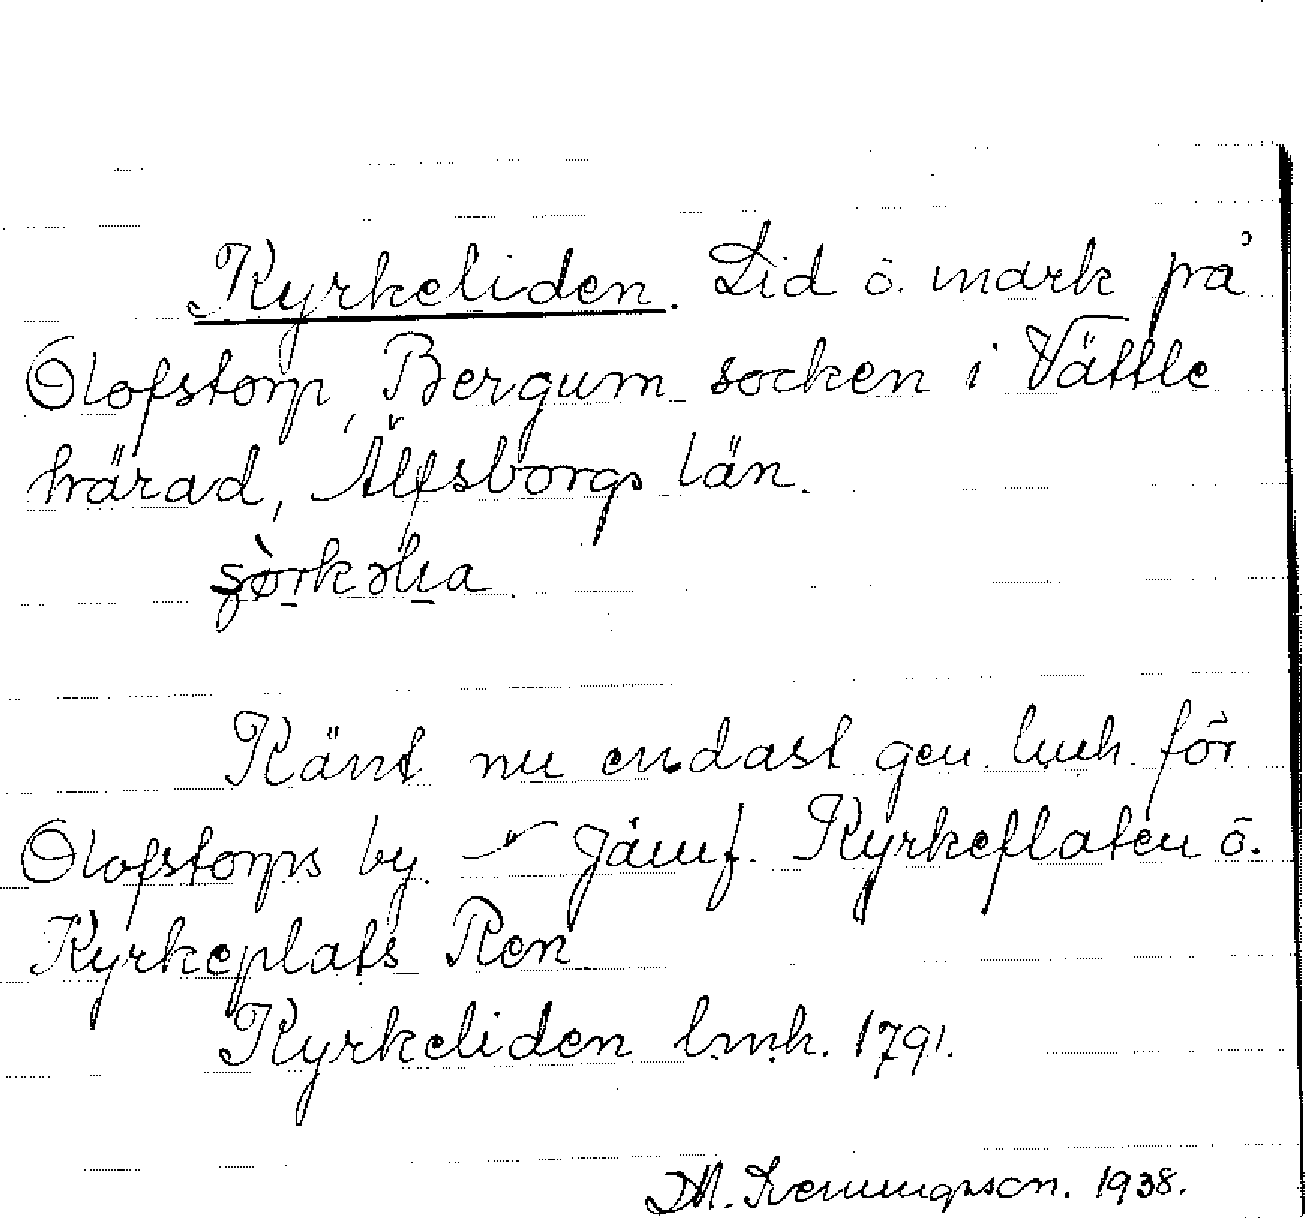 Kyrkeliden. Lid o. mark på
Olofstorp, Bergum socken i Vättle
härad, Älfsborgs län.
Känt nu endast gen. lmh. för
Olofstorps by. Jämf. Kyrkeflaten o.
Kyrkeplats Ren
Kyrkeliden lmh. 1791.
M. 1938.